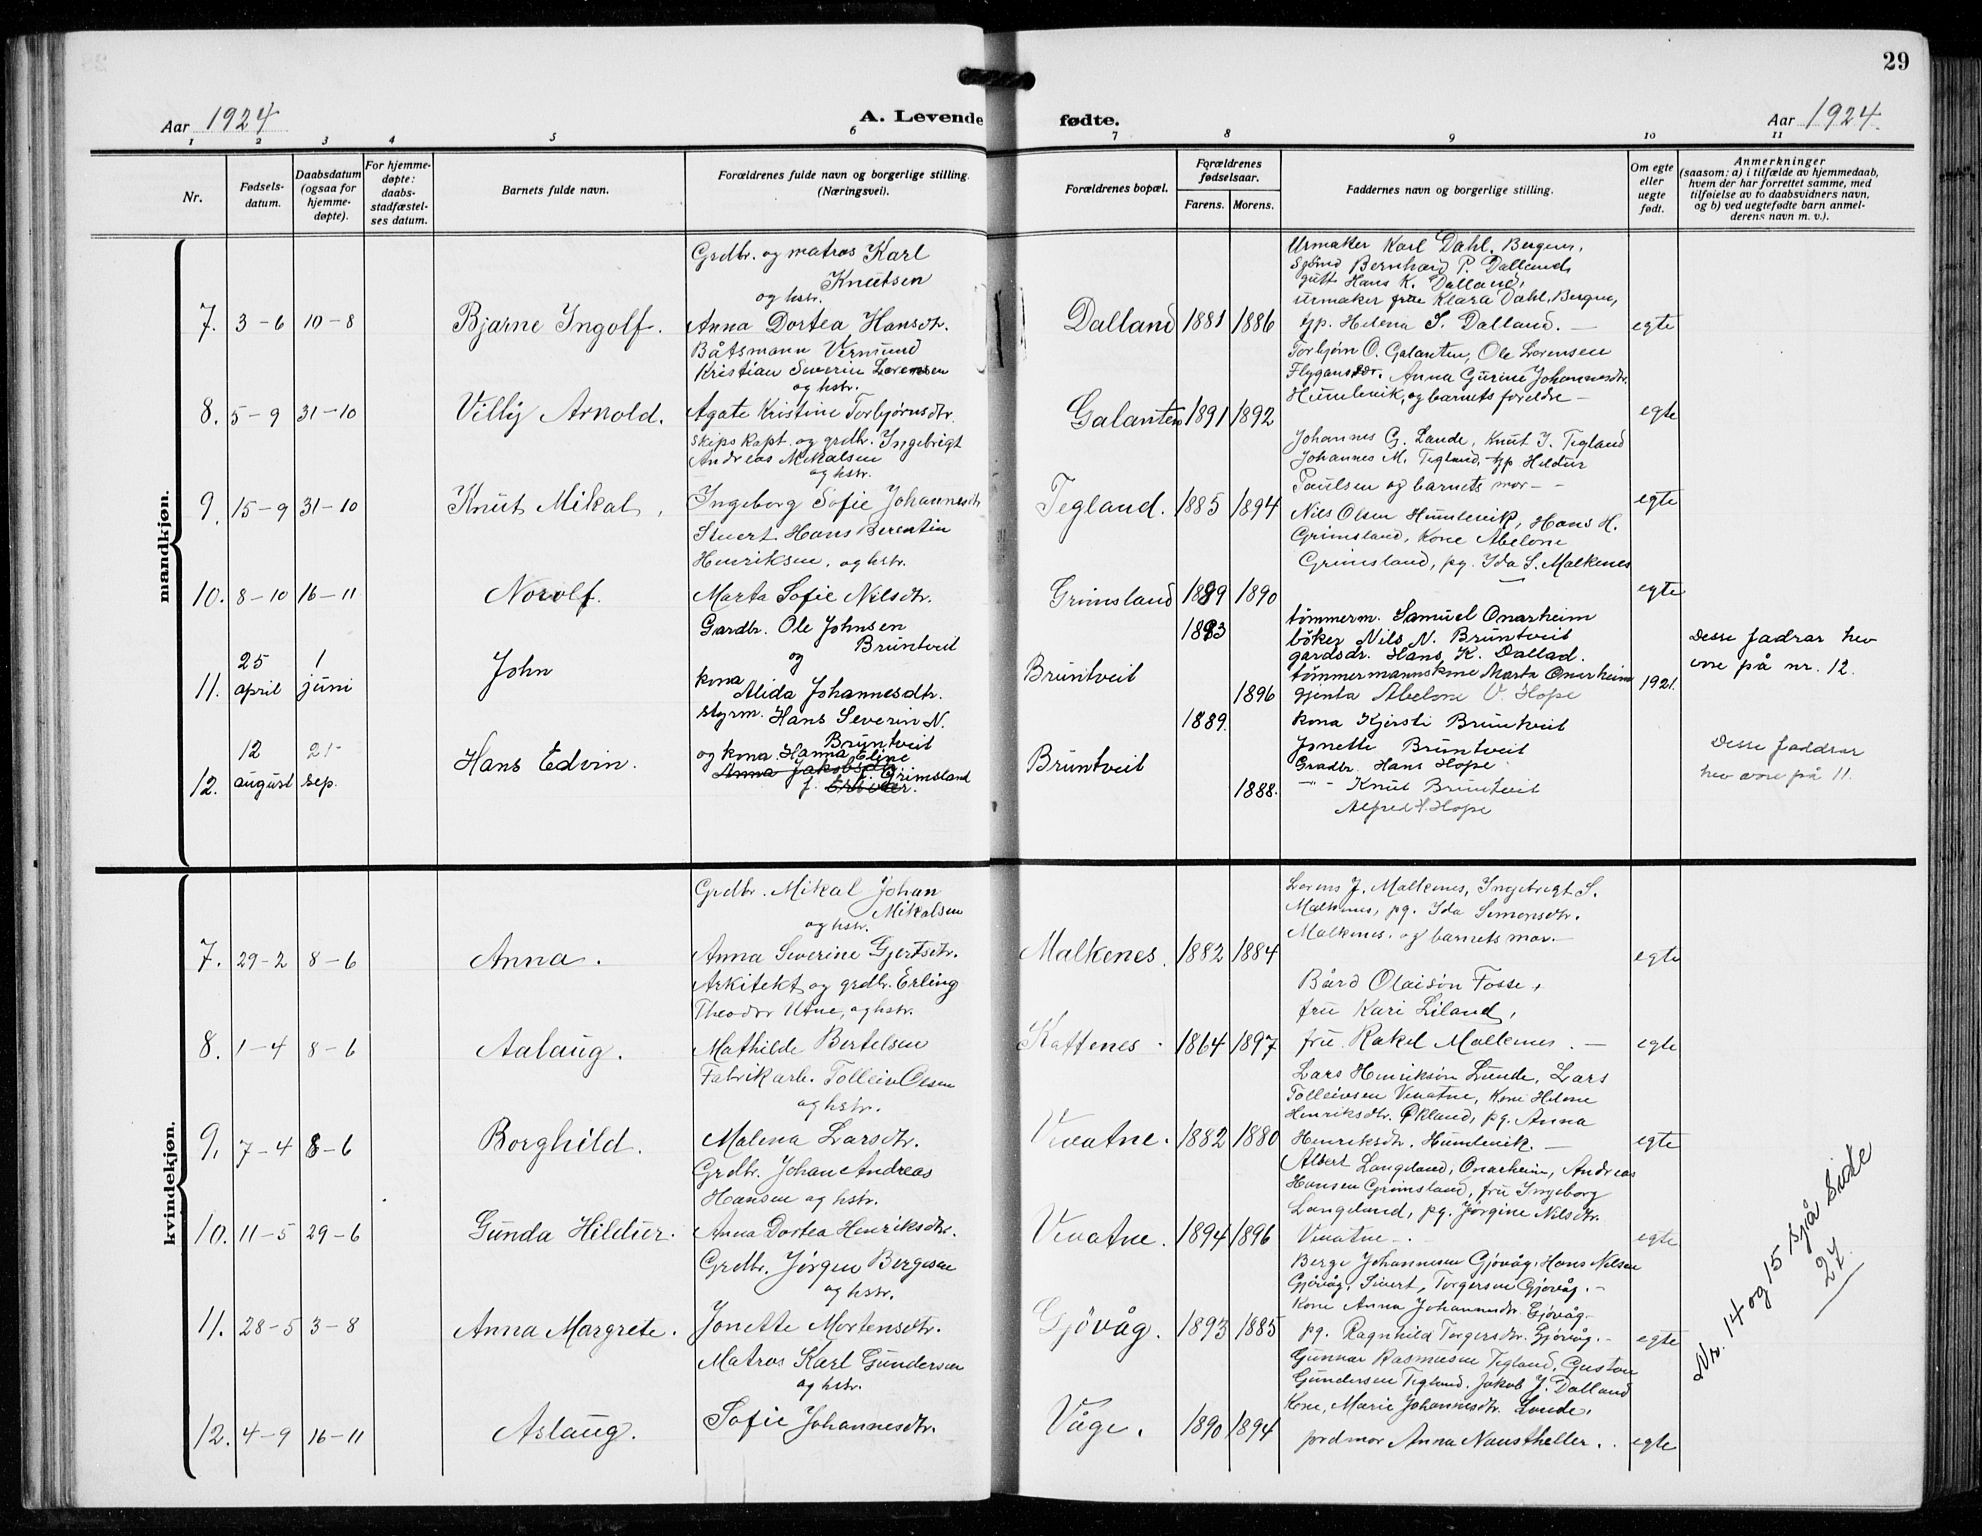 29
Aar 1924
A. Levende fødte.
Aar 1924.
1 2 3 4 5 6 7 8 9 10 11
Nr.
Fødsels-
datum.
Daabsdatum
(ogsaa for
hjemme-
døpte).
For hjemme-
døpte:
daabs-
stadfæstel-
ses datum.
Barnets fulde navn.
Forældrenes fulde navn og borgerlige stilling.
(Næringsvei).
Forældrenes bopæl.
Forældrenes
fødselsaar.
Farens. Morens.
Faddernes navn og borgerlige stilling.
Om egte
eller
uegte
født.
Anmerkninger
(saasom: a) i tilfælde av hjemmedaab,
hvem der har forrettet samme, med
tilføielse av to daabsvidners navn,
og b) ved uegtefødte barn anmel-
derens navn m. v.).
mandkjøn.
7. 3-6 10-8 Bjarne Ingolf.
Grdbr. og matros Karl
Knutsen
og hstr.
Anna Dortea Hansdtr.
Dalland 1881 1886
Urmaker Karl Dahl, Bergen,
Sjømd Bernhard P. Dalland,
gutt Hans K. Dalland,
urmaker frue Klara Dahl, Bergen,
tp. Helena S. Dalland. —
egte
8. 5-9 31-10 Villy Arnold.
Båtsmann Vermund
Kristian Severin Lorensen
og hstr.
Agate Kristine Torbjørnsdtr.
Galanten 1891 1892
Torbjørn O. Galanten, Ole Lorensen
Flygansvær. Anna Gurine Johannesdtr.
Humlevik, og barnets foreldre —
egte
9. 15-9 31-10 Knut Mikal.
Skipskapt. og grdbr. Ingebrigt
Andreas Mikalsen
og hstr.
Ingeborg Sofie Johannesdtr
Tegland. 1885 1894
Johannes G. Lande, Knut I. Tegland
Johannes M. Tegland, tp Heldur
Paulsen og barnets mor - -
egte
10. 8-10 16-11 Norolf.
Stuert. Hans Berentin
Henriksen. og hstr.
Marta Sofie Nilsdtr.
Grimsland 1889 1890
Nils Olsen Humlevik, Hans H.
Grimsland, Kone Abelone
Grimsland, pg. Ida S. Malkenes
—
egte
11. 25 april 1 juni John
Gardbr. Ole Johnsen
Bruntveit
og
kona
Alida Johannesdtr.
Bruntveit 1893 1896
tømmerm. Samuel Onarheim
bøker Nils N. Bruntveit
gardsdr. Hans K. Dallad.
tømmermannskone Marta Onarheim
gjenta Abelone V Hope
1921.
Desse fadrar hev
vore på nr. 12.
12. 12 august 21 sep. Hans Edvin.
styrm. Hans Severin N.
Bruntveit
og kona Hanna Eline
Anna Jakobsdtr
f. Grimsland
Bruntveit 1889. 1888.
Kona Kjersti Bruntveit
Jonette Bruntveit
Gradbr. Hans Hope
—"— Knut Bruntveit
Alfred H. Hope
Desse faddrar
hev vore på 11.
kvindekjøn.
7. 29-2 8-6 Anna.
Grdbr. Mikal Johan
Mikalsen
og hstr.
Anna Severine Gjertsdtr.
Malkenes. 1882 1884
Lorens J. Malkenes, Ingebregt S.
Malkenes, pg. Ida Simonsdtr.
Malkenes. og barnets mor. —
egte
8. 1-4 8-6 Aalaug.
Arkitekt og grdbr. Erling
Theodor Utne, og hstr.
Mathilde Bertelsen
Kattenes. 1864 1897
Bård Olaison Fosse,
fru Kari Liland,
fru. Rakel Malkenes. —
egte
9. 7-4 8-6 Borghild.
Fabrikarb. Tolleiv Olsen
og hstr.
Malena Larsdtr.
Vivatne. 1882 1880
Lars Henriksøn Lunde, Lars
Tolleivsen Vivatne, Kone Helene
Henriksdtr. Økland, pg. Anna
Henriksdtr. Humlevik. —
egte
10. 11-5 29-6 Gunda Hildur.
Grdbr. Johan Andreas
Hansen og hstr.
Anna Dortea Henriksdtr.
Vivatne. 1894 1896
Albert Langeland, Onarheim, Andreas
Hansen Grimsland, fru Ingeborg
Langeland, pg. Jørgine Nilsdtr.
Vivatne —.
egte
11. 28-5 3-8 Anna Margrete.
Grdbr. Jørgen Bergesen
og hstr.
Jonette Mortensdtr.
Gjøvåg. 1893 1885
Berge Johannesen Gjøvåg, Hans Nilsen
Gjøvåg, Sivert, Torgersen Gjøvåg. —
Kone Anna Johannesdtr. Gjøvåg-
pg. Ragnhild Torgersdtr. Gjøvåg. —
egte
12. 4-9 16-11 Aslaug.
Matros Karl Gundersen
og hstr.
Sofie Johannesdtr.
Våge. 1890 1894
Gunnar Rasmusen Tegland, Gustav
Gundersen Tegland. Jakob J. Dalland
Kone, Marie Johannesdtr. Lunde,
jordmor Anna Naustheller. .
egte
Nr. 14 og 15 sjå side
27.